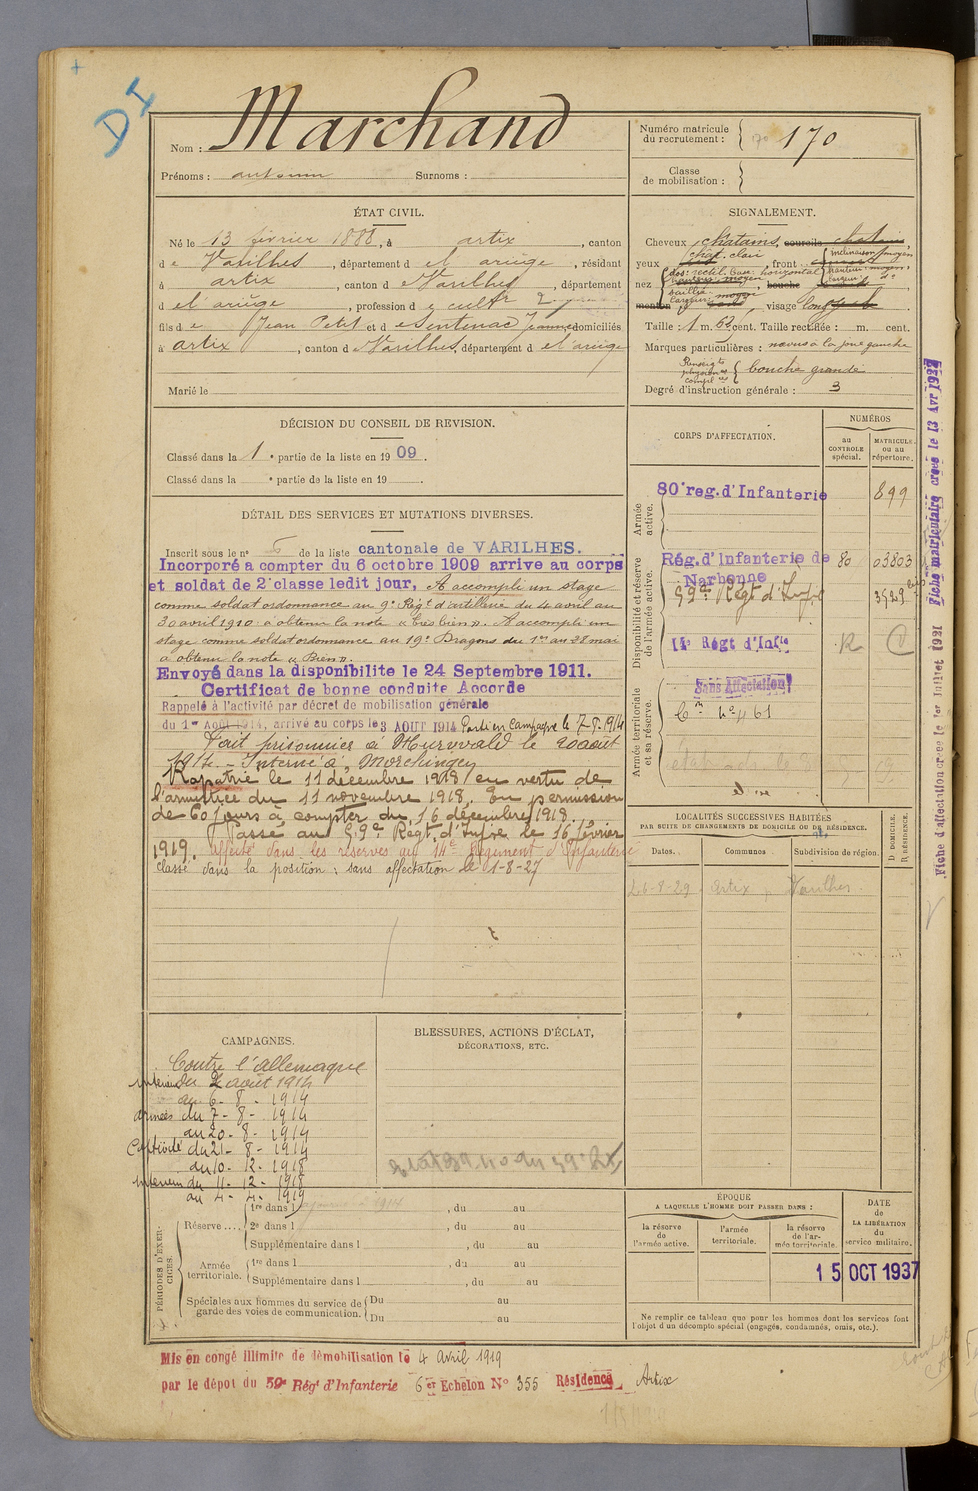 DI
Nom : Marchand
Prénoms : Surnoms :
Numéro matricule du recrutement : 170
Classe de mobilisation :
ÉTAT CIVIL.
Né le 13 février 1888, à artix, canton
d e Varilhes, département d el ariège, résidant
à artix, canton d e Varilhes, département
d el'ariège, profession d cultr
fils d e Jean Petit et d e Sentenac Jeanne domiciliés
à artix, canton d e Varilhes, département d el'ariège
Marié le
SIGNALEMENT.
Cheveux chatains, sourcils chatains,
yeux chat. clair, front inclinaison moyen
nez dos: rectil. base: horizontal, bouche
menton visage long
Taille : 1 m. 63 cent. Taille rectifiée : m. cent.
Marques particulières : nævus à la joue gauche
Renseigts physionom. complres bouche grande
Degré d'instruction générale : 3
DÉCISION DU CONSEIL DE REVISION.
Classé dans la 1 e partie de la liste en 1909.
Classé dans la e partie de la liste en 19 .
DÉTAIL DES SERVICES ET MUTATIONS DIVERSES.
Inscrit sous le n° de la liste cantonale de VARILHES.
Incorporé a compter du 6 octobre 1909 arrive au corps
et soldat de 2e classe ledit jour, A accompli un stage
comme soldat ordonnance au 9e Régt d'artillerie du 4 avril au
30 avril 1910 a obtenu la note « très bien ». A accompli un
stage comme soldat ordonnance au 19e Dragons du 1er au 28 mai
a obtenu la note « Bien ».
Envoyé dans la disponibilite le 24 Septembre 1911.
Certificat de bonne conduite Accorde
Rappelé à l'activité par décret de mobilisation générale
du 1er Août 1914, arrivé au corps le 3 AOUT 1914 Parti en Campagne le 7-8-1914
Fait prisonnier à le 20 août
1914. - Interné à Morchingen
Rapatrié le 11 décembre 1918 en vertu de
l'armistice du 11 novembre 1918. En permission
de 60 jours à compter du 16 décembre 1918.
Passé au 59e Regt d'Infre le 16 février
1919. affecté dans les réserves au 14e Régiment d'Infanterie
Classé dans la position : sans affectation le 1-8-27
CORPS D'AFFECTATION.
NUMÉROS
au CONTROLE spécial.
MATRICULE ou au répertoire.
Armée active.
80e reg. d'Infanterie 899
Disponibilité et réserve de l'armée active.
Rég. d'Infanterie de Narbonne 80 03803
59e Regt d'Infre 3529
14e Régt d'Infie R
Armée territoriale et sa réserve.
Sans Affectation
LOCALITÉS SUCCESSIVES HABITÉES
PAR SUITE DE CHANGEMENTS DE DOMICILE OU DE RÉSIDENCE.
Dates. Communes. Subdivision de région. D. DOMICILE. R. RÉSIDENCE.
26-8-29 Artix Varilhes
Fiche matriculaire créée le 13 Avr 1922
Fiche d'affectation créée le 1er Juillet 1921
CAMPAGNES.
Contre l'allemagne
Intérieur du 2 août 1914
au 6 - 8 - 1914
armées du 7 - 8 - 1914
au 20 - 8 - 1914
Captivité du 21 - 8 - 1914
au 10 - 12 - 1918
Intérieur du 11 - 12 - 1918
au 4 - 4 - 1919
BLESSURES, ACTIONS D'ÉCLAT,
DÉCORATIONS, ETC.
PÉRIODES D'EXERCICES.
Réserve .... 1re dans l , du au
2e dans l , du au
Supplémentaire dans l , du au
Armée territoriale. 1re dans l , du au
Supplémentaire dans l , du au
Spéciales aux hommes du service de garde des voies de communication. Du au
Du au
ÉPOQUE
A LAQUELLE L'HOMME DOIT PASSER DANS :
la réserve de l'armée active.
l'armée territoriale.
la réserve de l'armée territoriale.
DATE de LA LIBÉRATION du service militaire.
15 OCT 1937
Ne remplir ce tableau que pour les hommes dont les services font
l'objet d'un décompte spécial (engagés, condamnés, omis, etc.).
Mis en congé illimité de démobilisation le 4 Avril 1919
par le dépot du 59e Régt d'Infanterie 6 er Echelon N° 355 Résidence Artix